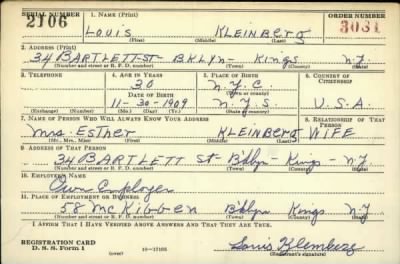 SERIAL NUMBER 1. NAME (Print) ORDER NUMBER
2106 LOUIS KLEINBERG 3031
(First) (Middle) (Last)
2. ADDRESS (Print)
34 BARTLETT ST BKLYN- Kings N.Y.
(Number and street or R. F. D. number) (Town) (County) (State)
3. TELEPHONE 4. AGE IN YEARS 5. PLACE OF BIRTH 6. COUNTRY OF CITIZENSHIP
30 N.Y.C.
DATE OF BIRTH (Town or county)
11-30-1909 N.Y.S. U.S.A.
(Exchange) (Number) (Mo.) (Day) (Yr.) (State or country)
7. NAME OF PERSON WHO WILL ALWAYS KNOW YOUR ADDRESS 8. RELATIONSHIP OF THAT PERSON
Mrs. Esther KLEINBERG WIFE
(Mr., Mrs., Miss) (First) (Middle) (Last)
9. ADDRESS OF THAT PERSON
34 BARTLETT St- B'klyn- Kings- N.Y
(Number and street or R. F. D. number) (Town) (County) (State)
10. EMPLOYER'S NAME
Own Employer
11. PLACE OF EMPLOYMENT OR BUSINESS
58 McKibben B'klyn Kings N.Y
(Number and street or R. F. D. number) (Town) (County) (State)
I AFFIRM THAT I HAVE VERIFIED ABOVE ANSWERS AND THAT THEY ARE TRUE.
REGISTRATION CARD
D. S. S. Form 1 (over) Louis Kleinberg
(Registrant's signature)